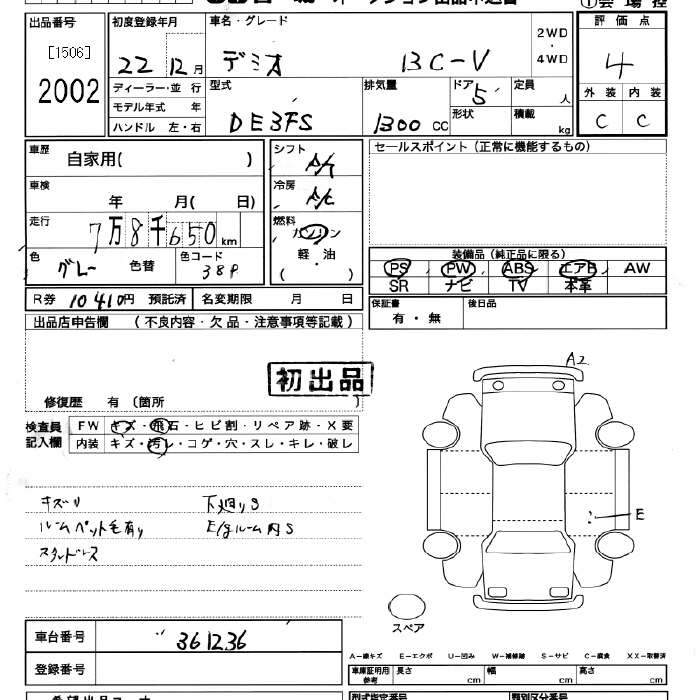 出品番号 初度登録年月 車名・グレード ①会場控
[1506] 22 12月 デミオ 13C-V 2WD・4WD 評価点
2002 4
ディーラー・並行 型式 排気量 ドア 5 定員 人 外装 内装
モデル年式 年 DE3FS 1300 CC 形状 積載 kg C C
ハンドル 左・右
車歴 自家用( ) シフト A/T セールスポイント(正常に機能するもの)
車検 年 月( 日) 冷房 A/C
走行 7万8千650km 燃料 ガソリン
色 グレー 色替 色コード 38P 軽・油 ( )
装備品(純正品に限る)
PS PW ABS エアB AW
SR ナビ TV 本革
R券 10410円 預託済 名変期限 月 日
保証書 有・無 後日品
出品店申告欄 (不良内容・欠品・注意事項等記載)
初出品
修復歴 有 (箇所 )
A2
検査員記入欄 FW キズ・飛石・ヒビ割・リペア跡・X要
内装 キズ・汚レ・コゲ・穴・スレ・キレ・破レ
キズU 下廻りS
ルームペット毛有り E/gルーム内S
スタッドレス
E
スペア
車台番号 361236
登録番号
A−線キズ E−エクボ U−凹み W−補修跡 S−サビ C−腐食 XX−取替済
車庫証明用参考 長さ cm 幅 cm 高さ cm
型式指定番号 類別区分番号